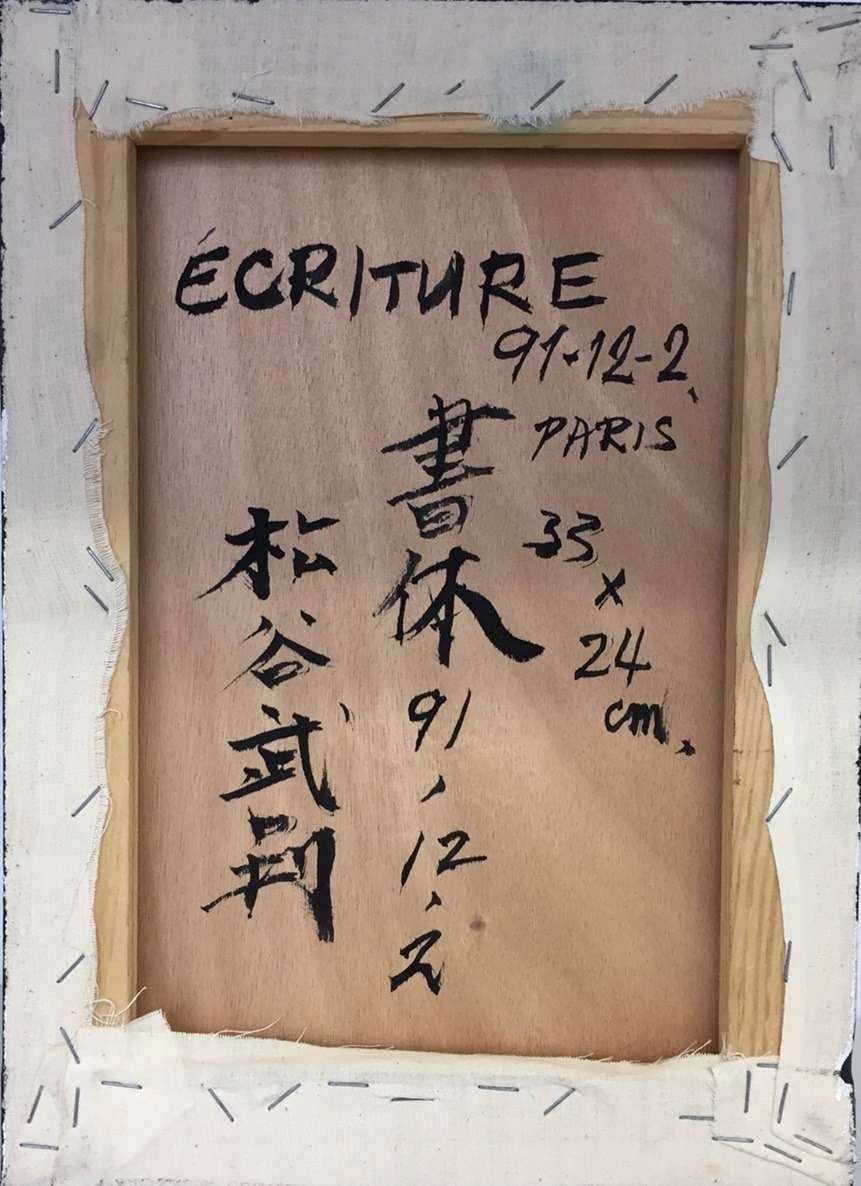 ÉCRITURE
91-12-2、
PARIS
33
x
24
cm、
書体 91、12、2
松谷武判